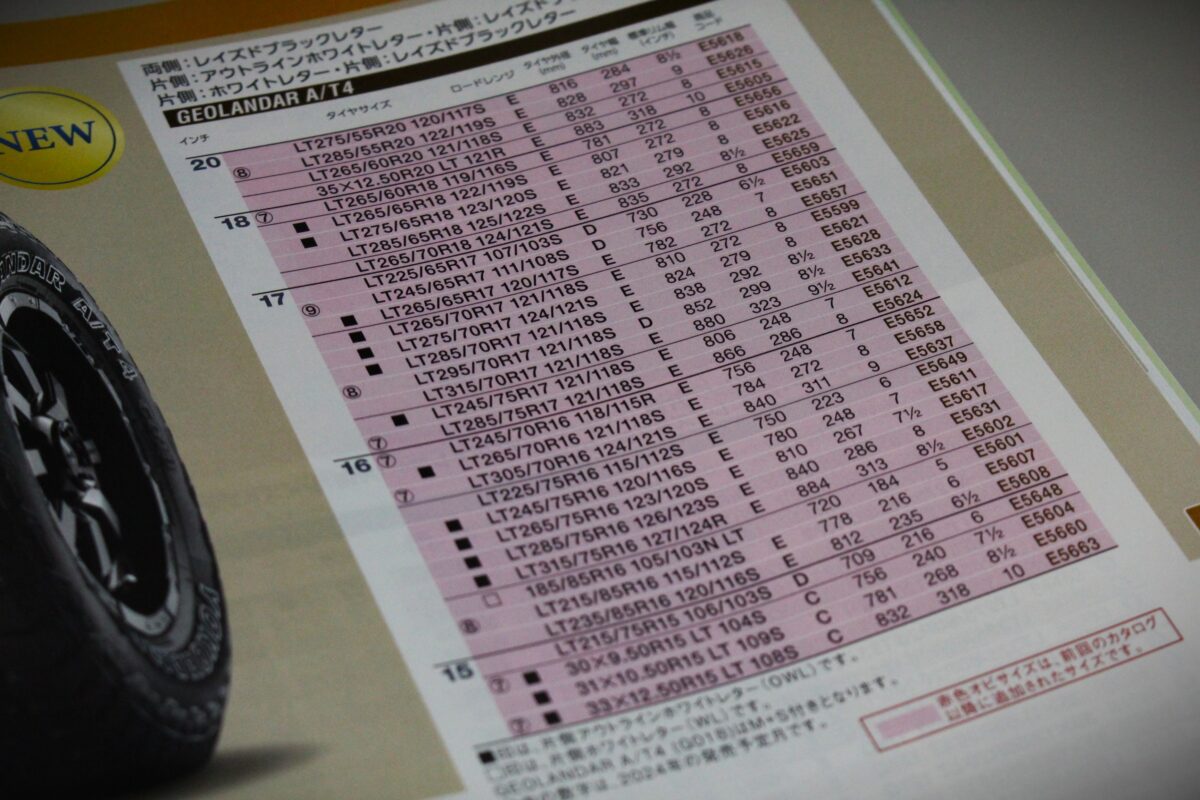 両側:レイズドブラックレター
片側:アウトラインホワイトレター・片側:レイズドブラックレター
片側:ホワイトレター・片側:レイズドブラックレター
GEOLANDAR A/T4
インチ タイヤサイズ ロードレンジ タイヤ外径(mm) タイヤ幅(mm) 標準リム幅(インチ) 商品コード
NEW
20 LT275/55R20 120/117S E 816 284 8½ E5618
⑧ LT285/55R20 122/119S E 828 297 9 E5626
LT265/60R20 121/118S E 832 272 8 E5615
35×12.50R20 LT 121R E 883 318 10 E5605
18 ⑦ LT265/60R18 119/116S E 781 272 8 E5656
■ LT265/65R18 122/119S E 807 272 8 E5616
■ LT275/65R18 123/120S E 821 279 8 E5622
LT285/65R18 125/122S E 833 292 8½ E5625
LT265/70R18 124/121S E 835 272 8 E5659
17 LT225/65R17 107/103S D 730 228 6½ E5603
⑨ LT245/65R17 111/108S D 756 248 7 E5651
■ LT265/65R17 120/117S E 782 272 8 E5657
■ LT265/70R17 121/118S E 810 272 8 E5599
■ LT275/70R17 124/121S E 824 279 8 E5621
■ LT285/70R17 121/118S E 838 292 8½ E5628
⑧ LT295/70R17 121/118S E 852 299 8½ E5633
LT315/70R17 121/118S D 880 323 9½ E5641
■ LT245/75R17 121/118S E 806 248 7 E5612
⑦ LT285/75R17 121/118S E 866 286 8 E5624
16 ⑦ LT245/70R16 118/115R E 756 248 7 E5652
■ LT265/70R16 121/118S E 784 272 8 E5658
⑦ LT305/70R16 124/121S E 840 311 9 E5637
LT225/75R16 115/112S E 750 223 6 E5649
■ LT245/75R16 120/116S E 780 248 7 E5611
■ LT265/75R16 123/120S E 810 267 7½ E5617
■ LT285/75R16 126/123S E 840 286 8 E5631
■ LT315/75R16 127/124R E 884 313 8½ E5602
□ 185/85R16 105/103N LT 720 184 5 E5601
⑧ LT215/85R16 115/112S E 778 216 6 E5607
LT235/85R16 120/116S E 812 235 6½ E5608
15 LT215/75R15 106/103S D 709 216 6 E5648
⑦ ■ 30×9.50R15 LT 104S C 756 240 7½ E5604
■ 31×10.50R15 LT 109S C 781 268 8½ E5660
⑦ ■ 33×12.50R15 LT 108S C 832 318 10 E5663
■印は、片側アウトラインホワイトレター(OWL)です。
□印は、片側ホワイトレター(WL)です。
GEOLANDAR A/T4 (G018)はM+S付きとなります。
の数字は、2024年の発売予定月です。
赤色オビサイズは、前回のカタログ
以降に追加されたサイズです。